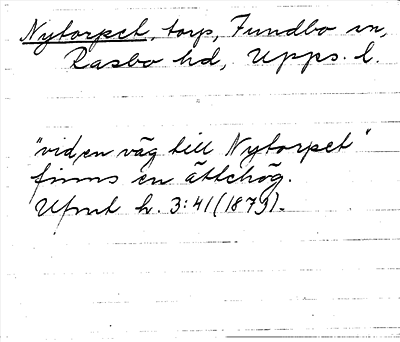 Nytorpet, torp, Funbo sn,
Rasbo hd, Upps. l.
"vid en väg till Nytorpet"
finns en ättehög.
Ufmt h. 3:41 (1873).